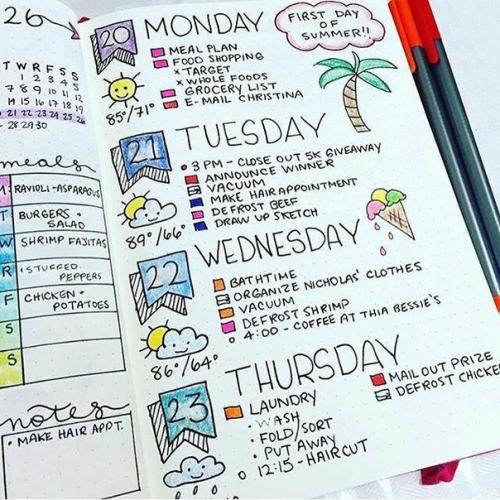 26
T W R F S S
1 2 3 4 5
7 8 9 10 11 12
14 15 16 17 18 19
21 22 23 24 25 26
28 29 30
meals
M RAVIOLI + ASPARAGUS
T BURGERS +
SALAD
W SHRIMP FAJITAS
R STUFFED
PEPPERS
F CHICKEN +
POTATOES
S
S
notes
• MAKE HAIR APPT.
20
MONDAY
FIRST DAY
OF
SUMMER!!
MEAL PLAN
FOOD SHOPPING
x TARGET
x WHOLE FOODS
GROCERY LIST
E-MAIL CHRISTINA
85°/71°
21
TUESDAY
3 PM - CLOSE OUT 5K GIVEAWAY
ANNOUNCE WINNER
VACUUM
MAKE HAIR APPOINTMENT
DEFROST BEEF
DRAW UP SKETCH
89°/66°
22
WEDNESDAY
BATHTIME
ORGANIZE NICHOLAS' CLOTHES
VACUUM
DEFROST SHRIMP
4:00 - COFFEE AT THIA BESSIE'S
86°/64°
23
THURSDAY
LAUNDRY
• WASH
• FOLD/SORT
• PUT AWAY
12:15 - HAIRCUT
MAIL OUT PRIZE
DEFROST CHICKE